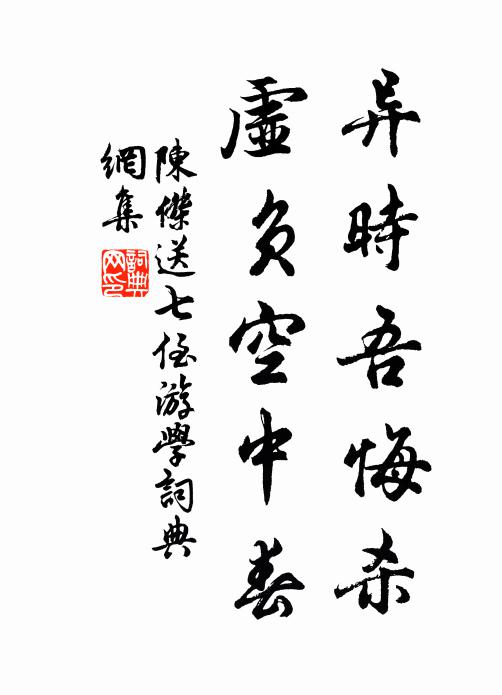 异時吾悔杀
虛负空中春
陳傑送七侄游學詞典
網集
詞典
网印